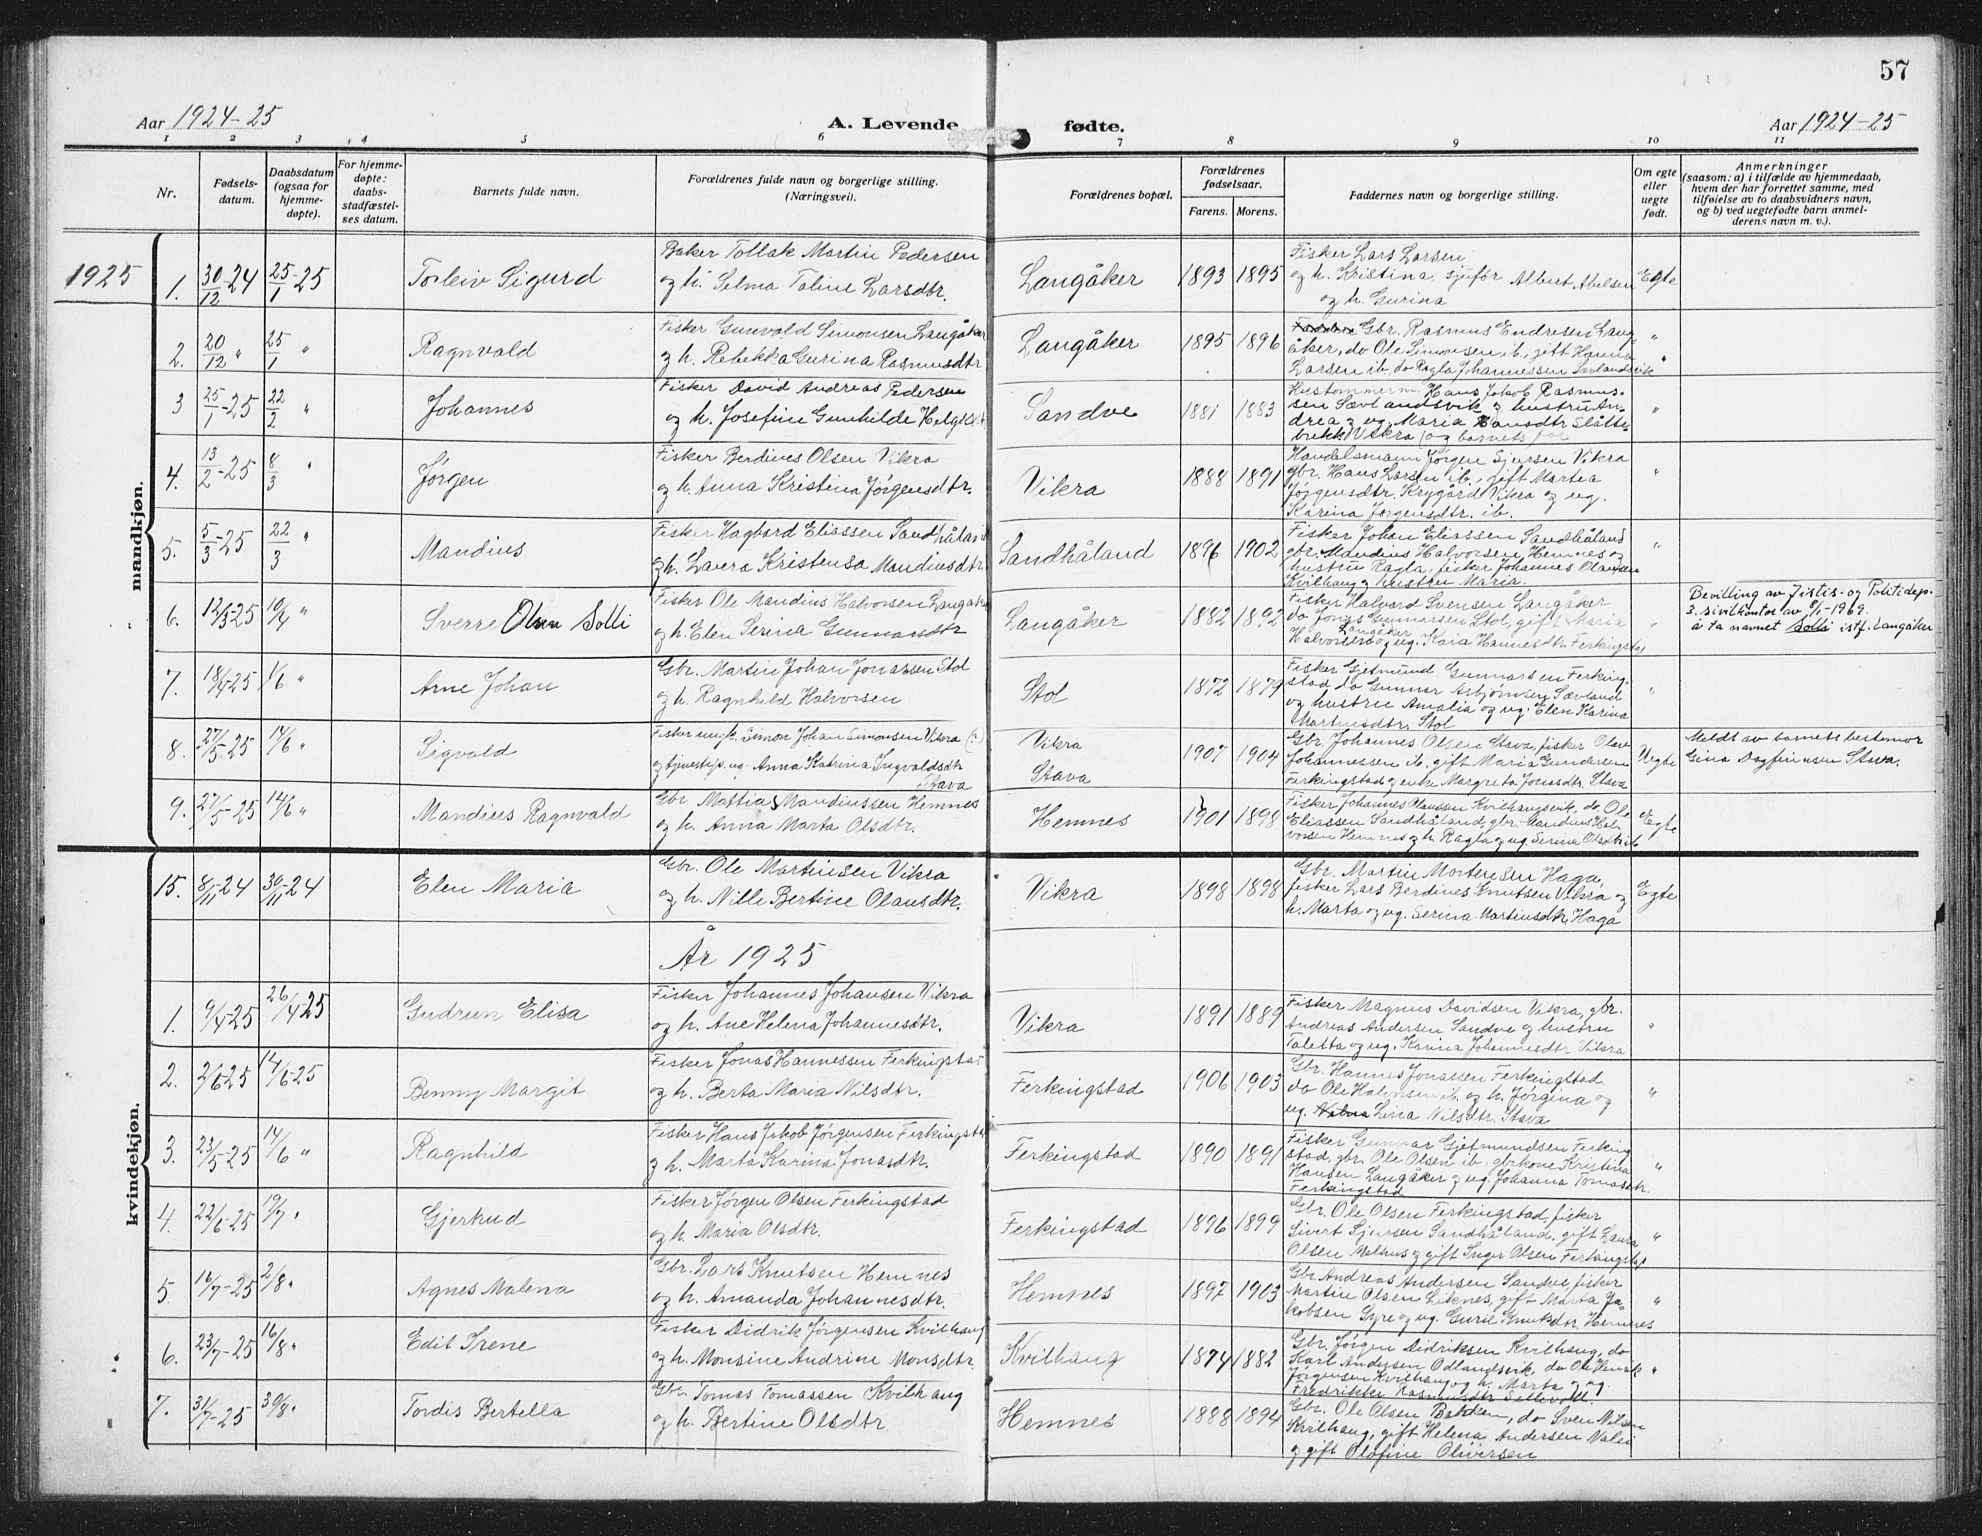 57
Aar 1924-25
A. Levende fødte.
Aar 1924-25
1 2 3 4 5 6 7 8 9 10 11
Nr.
Fødsels-
datum.
Daabsdatum
(ogsaa for
hjemme-
døpte).
For hjemme-
døpte:
daabs-
stadfæstel-
ses datum.
Barnets fulde navn.
Forældrenes fulde navn og borgerlige stilling.
(Næringsvei).
Forældrenes bopæl.
Forældrenes
fødselsaar.
Farens. Morens.
Faddernes navn og borgerlige stilling.
Om egte
eller
uegte
født.
Anmerkninger
(saasom: a) i tilfælde av hjemmedaab,
hvem der har forrettet samme, med
tilføielse av to daabsvidners navn,
og b) ved uegtefødte barn anmel-
derens navn m. v.).
1925
mandkjøn.
1. 30/12-24 25/1-25 Torleiv Sigurd
Baker Tollak Martin Pedersen
og h. Selma Taline Larsdtr.
Langåker 1893 1895
Fisker Lars Larsen
og h. Kristina, sjåfør Albert Abelsen
og h. Gurina
Egte
2. 20/12 " 25/1 " Ragnvald
Fisker Gunvald Simonsen Langåker
og h. Rebekka Gurina Rasmusdtr
Langåker 1895 1896
Gbr. Rasmus Endresen Lang-
åker, do Ole Simonsen ib., gift Hanna
Larsen ib. do Ragla Johannessen Sævlandsvik
"
3 25/1-25 22/2 " Johannes
Fisker David Andreas Pedersen
og h. Josefine Gunhilde Helgesdtr
Sandve 1881 1883
Hustømmerm. Hans Jakob Rasmus-
sen Sævlandsvik og hustru An-
drea og ug. Maria Hansdtr Slåtte-
brekk, Vikra (og barnets far
"
4. 13/2-25 8/3 " Jørgen
Fisker Berdines Olsen Vikra
og h. Anna Kristina Jørgensdtr.
Vikra 1888 1891
Handelsmann Jørgen Sjursen Vikra
gbr. Hans Larsen ib., gift Martea
Jørgensdtr. Krygård Vikra og ug.
Karina Jørgensdtr. ib.
"
5. 5/3-25 22/3 " Mandius
Fisker Hagbard Eliassen Sandhåland
og h. Lavera Kristensa Mandiusdtr.
Sandhåland 1896 1902
Fisker Johan Eliassen Sandhåland
gbr. Mandius Halvorsen Hemnes og
hustru Ragla, fisker Johannes Olaussen
Kvilhaug og hustru Maria.
"
6. 12/3-25 10/4 " Sverre Olsen Solli
Fisker Ole Mandius Halvorsen Langåker
og h. Elen Serina Gunnarsdtr
Langåker 1882 1892
Fisker Halvard Svensen Langåker
do Jonas Gunnarsen Stol, gift Maria
Halvorsen Langåker og ug. Kaia Hannesdtr. Ferkingstad
"
Bevilling av Justis- og Politidep.
3. sivilkontor av 9/1-1969.
å ta navnet Solli istf. Langåker
7. 18/4-25 1/6 " Arne Johan
Gbr. Martin Johan Jonassen Stol
og h. Ragnhild Halvorsen
Stol 1872 1879
Fisker Gjetmund Gunnarsen Ferking-
stad do Gunnar Asbjørnsen Sævland
og hustru Amalia og ug. Elen Karina
Martinsdtr. Stol
"
8. 27/5-25 14/6 " Sigvald
Fisker ungk. Simon Johan Simonsen Vikra (?)
og tjenestep. ug. Anna Katrina Ingvaldsdtr
Stava
Vikra
Stava
1907 1904
Gbr. Johannes Olsen Stava, fisker Olav
Johannessen ib. gift Maria Gundersen
Ferkingstad og enke Margreta Jonasdtr. Stava
Uegte
Meldt av barnets bestemor
Gina Dagfinnsen Stava.
9. 27/5-25 14/6 " Mandius Ragnvald
Gbr. Mattias Mandiussen Hemnes
og h. Anna Marta Olsdtr.
Hemnes 1901 1898
Fisker Johannes Olaussen Kvilhaugsvik, do Ole
Eliassen Sandhåland, gbr. Mandius Hal-
vorsen Hemnes og h. Ragla og ug. Serina Olsdtr ib
Egte
kvindekjøn.
15. 8/11-24 30/11-24 Elen Maria
Gbr. Ole Martinsen Vikra
og h. Nille Bertine Olausdtr.
Vikra 1898 1898
Gbr. Martin Mortensen Haga,
fisker Lars Berdines Knutsen Vikra og
h. Marta og ug. Serina Martinsdtr. Haga
Egte
År 1925
1. 9/4-25 26/4-25 Gudrun Elisa
Fisker Johannes Johansen Vikra
og h. Ane Helena Johannesdtr.
Vikra 1891 1889
Fisker Magnus Davidsen Vikra, gbr.
Andreas Andersen Sandve og hustru
Taletta og ug. Karina Johannesdtr Vikra
"
2. 2/6-25 14/6-25 Benny Margit
Fisker Jonas Hannessen Ferkingstad
og h. Berta Maria Nilsdtr.
Ferkingstad 1906 1903
Gbr. Hannes Jonassen Ferkingstad
do Ole Halvorsen ib. og h. Jørgina og
ug. Lina Nilsdtr. Stava
"
3. 23/5-25 14/6 " Ragnhild
Fisker Hans Jakob Jørgensen Ferkingstad
og h. Marta Karina Jonasdtr.
Ferkingstad 1890 1891
Fisker Gunnar Gjetmundsen Ferking-
stad, gbr. Ole Olsen ib., gbrkone Kristina
Hansen Langåker og ug. Johanna Tomasdtr.
Ferkingstad
"
4. 22/6-25 19/7 " Gjertrud
Fisker Jørgen Olsen Ferkingstad
og h. Maria Olsdtr.
Ferkingstad 1896 1899
Gbr. Ole Olsen Ferkingstad, fisker
Sivert Sjursen Sandhåland, gift Laura
Olsen Melhus og gift Inger Olsen Ferkingstad
"
5. 16/7-25 2/8 " Agnes Malena
Gbr. Lars Knutsen Hemnes
og h. Amanda Johannesdtr.
Hemnes 1897 1903
Gbr. Andreas Andersen Sandve, fisker
Martin Olsen Liknes, gift Marta Ja-
kobsen Syre og ug. Guril Knutsdtr. Hemnes
"
6. 23/7-25 16/8 " Edit Irene
Fisker Didrik Jørgensen Kvilhaug
og h. Monsine Andrine Monsdtr.
Kvilhaug 1874 1882
Gbr. Jørgen Didriksen Kvilhaug, do
Karl Andersen Odlandsvik, do Ole Henrik
Jørgensen Kvilhaug og h. Marta og ug
Fredrikke Rasmusdtr
"
7. 31/7-25 30/8 " Tordis Bertella
Gbr. Tomas Tomassen Kvilhaug
og h. Bertine Olsdtr.
Hemnes 1888 1894
Gbr. Ole Olsen Bakken, do Sven Nilsen
Kvilhaug, gift Helena Andersen
og gift Olofine Oliversen